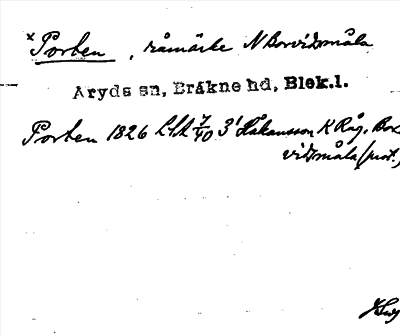 × Porten, råmärke N Borvidsmåla
Aryds sn, Bräkne hd, Blek.l.
Porten 1826 LSA 7/40 3' Håkansson K Råg. Bor
vidsmåla (prot.)